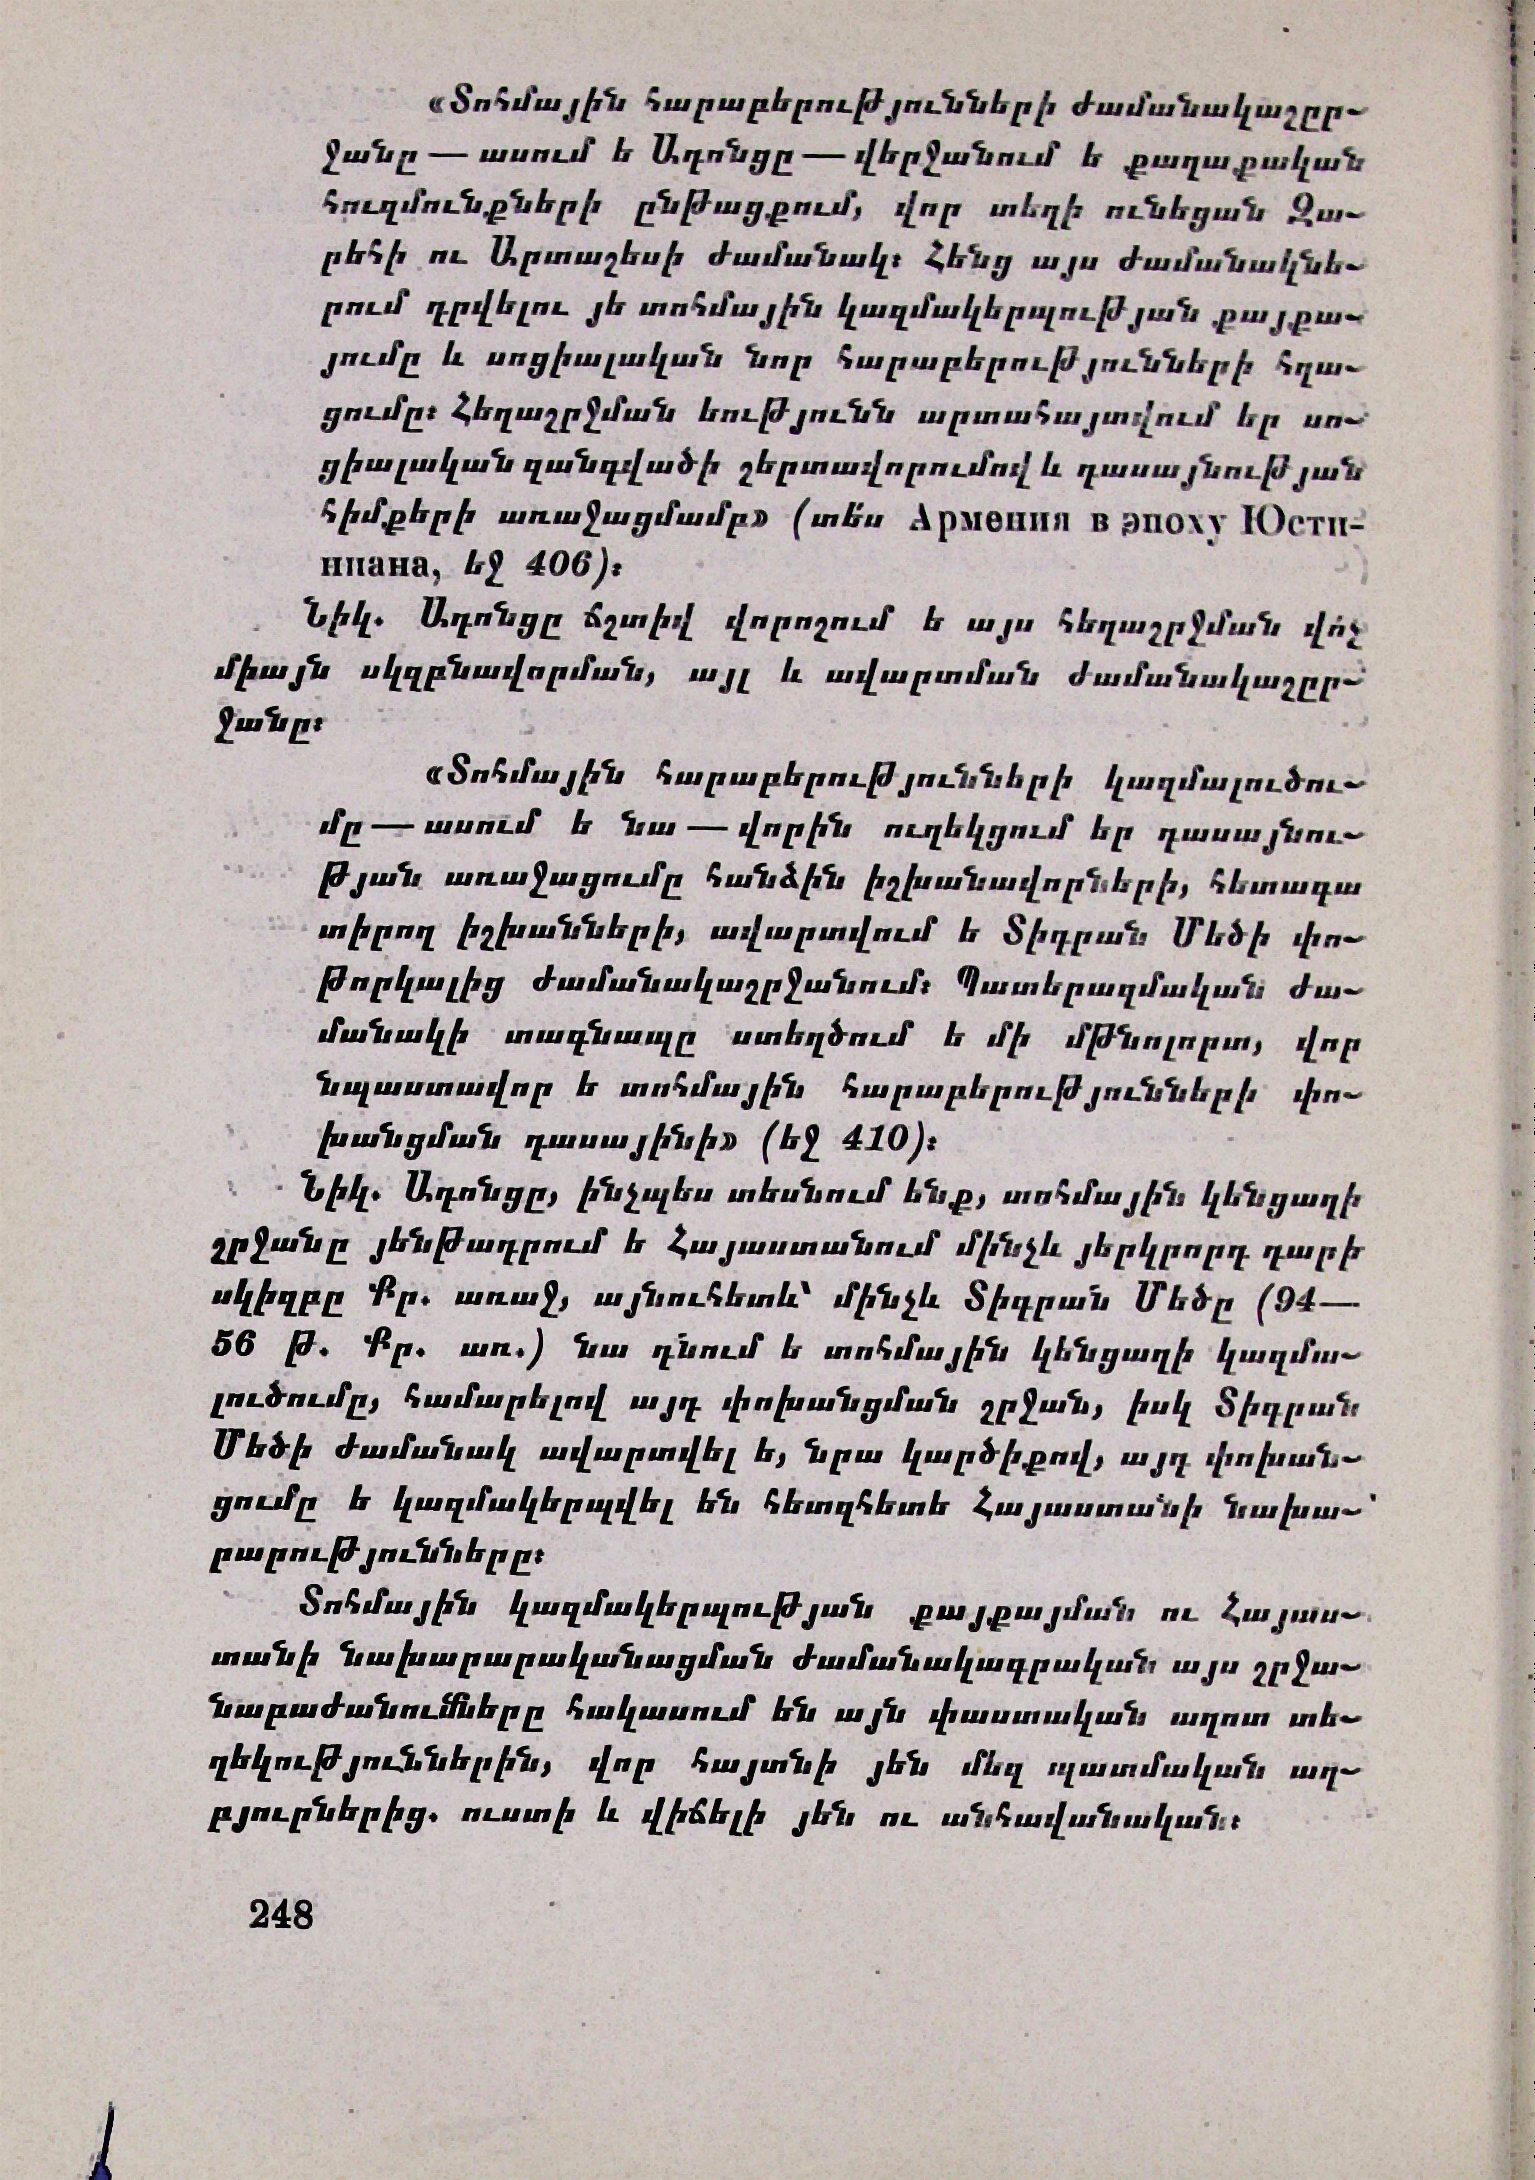 «Տոհմային հարաբերությունների ժամանակաշըր-
ջանը — ասում ե Ադոնցը — վերջանում ե քաղաքական
հուզմունքների ընթացքում, վոր տեղի ունեցան Զա-
րեհի ու Արտաշեսի ժամանակ։ Հենց այս ժամանակնե-
րում դրվելու յե տոհմային կազմակերպության քայքա-
յումը և սոցիալական նոր հարաբերությունների հղա-
ցումը։ Հեղաշրջման եությունն արտահայտվում եր սո-
ցիալական զանգվածի շերտավորումով և դասայնության
հիմքերի առաջացմամբ» (տե՛ս Армения в эпоху Юсти-
ниана, եջ 406)։
Նիկ. Ադոնցը ճշտիվ վորոշում ե այս հեղաշրջման վո՛չ
միայն սկզբնավորման, այլ և ավարտման ժամանակաշըր-
ջանը։
«Տոհմային հարաբերությունների կազմալուծու-
մը — ասում ե նա — վորին ուղեկցում եր դասայնու-
թյան առաջացումը հանձին իշխանավորների, հետագա
տիրող իշխանների, ավարտվում ե Տիգրան Մեծի փո-
թորկալից ժամանակաշրջանում։ Պատերազմական ժա-
մանակի տագնապը ստեղծում ե մի մթնոլորտ, վոր
նպաստավոր ե տոհմային հարաբերությունների փո-
խանցման դասայինի» (եջ 410)։
Նիկ. Ադոնցը, ինչպես տեսնում ենք, տոհմային կենցաղի
շրջանը յենթադրում ե Հայաստանում մինչև յերկրորդ դարի
սկիզբը Քր. առաջ, այնուհետև՝ մինչև Տիգրան Մեծը (94—
56 թ. Քր. առ.) նա դնում ե տոհմային կենցաղի կազմա-
լուծումը, համարելով այդ փոխանցման շրջան, իսկ Տիգրան
Մեծի ժամանակ ավարտվել ե, նրա կարծիքով, այդ փոխան-
ցումը ե կազմակերպվել են հետզհետե Հայաստանի նախա-
րարությունները։
Տոհմային կազմակերպության քայքայման ու Հայաս-
տանի նախարարականացման ժամանակագրական այս շրջա-
նաբաժանումները հակասում են այն փաստական աղոտ տե-
ղեկություններին, վոր հայտնի յեն մեզ պատմական աղ-
բյուրներից. ուստի և վիճելի յեն ու անհավանական։
248